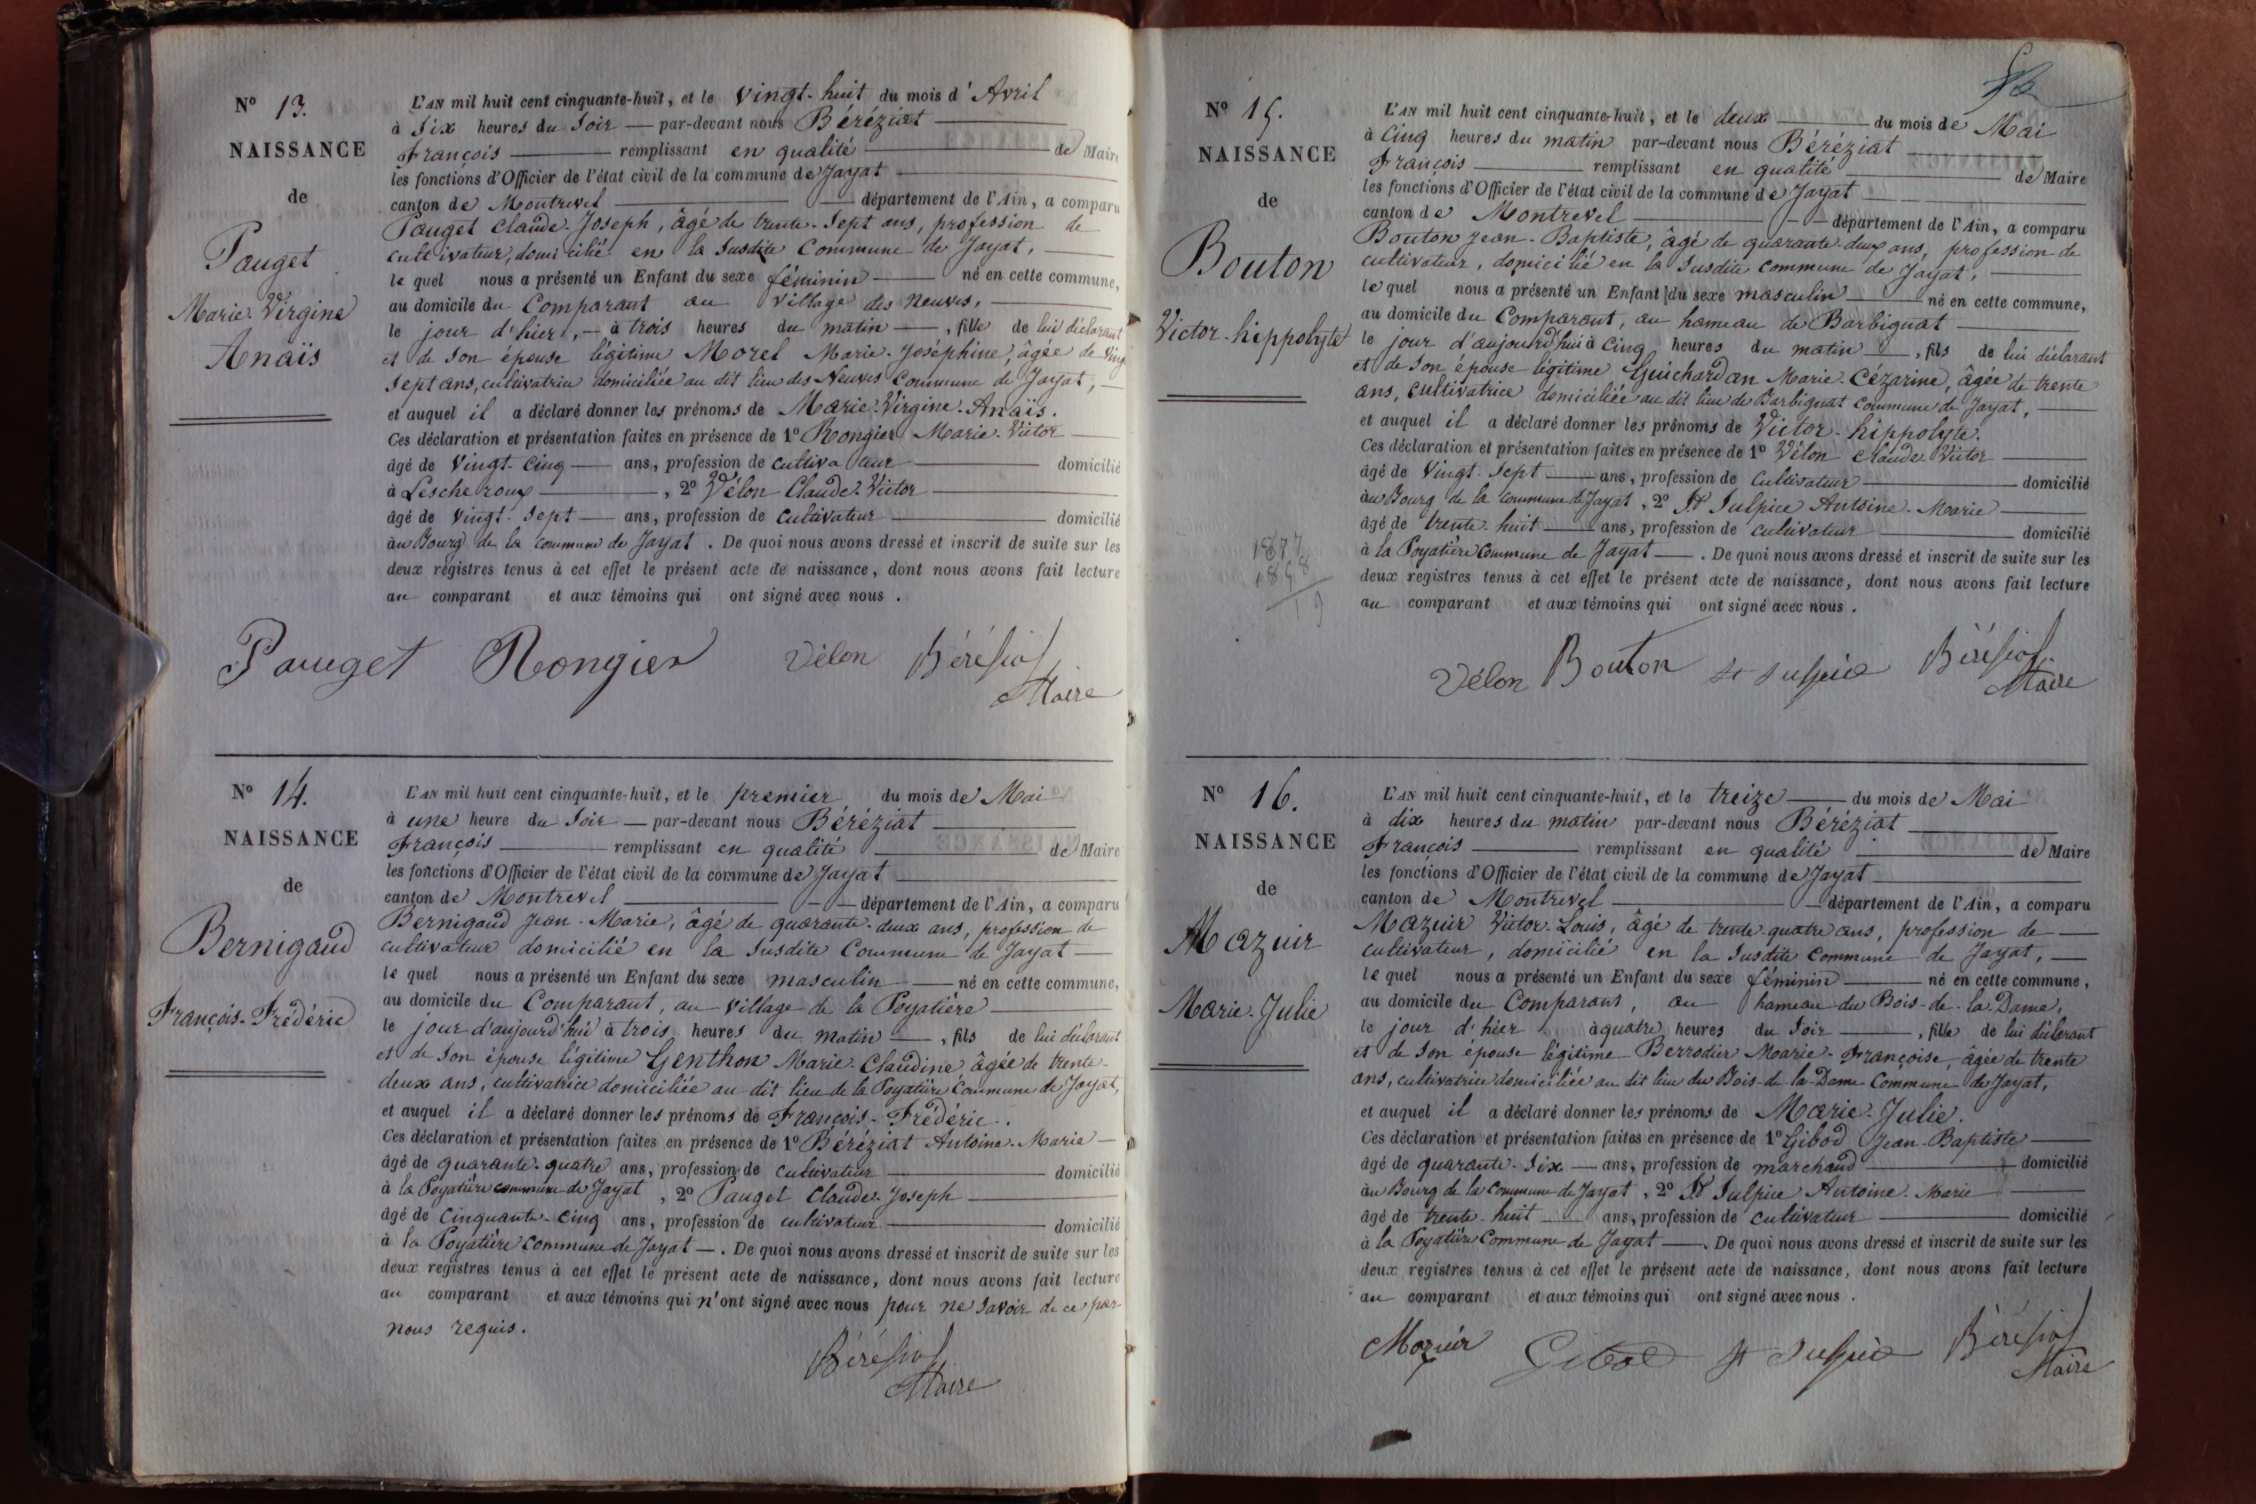 N° 13.
NAISSANCE
de
Pauget
Marie-Virgine
Anaïs
L'AN mil huit cent cinquante-huit, et le vingt-huit du mois d'Avril
à six heures du soir — par-devant nous Béréziat
François — remplissant en qualité — de Maire
les fonctions d'Officier de l'état civil de la commune de Jayat
canton de Montrevel — département de l'Ain, a comparu
Pauget Claude-Joseph, âgé de trente-sept ans, profession de
cultivateur, domicilié en la susdite Commune de Jayat, —
le quel nous a présenté un Enfant du sexe féminin — né en cette commune,
au domicile du Comparant au village des Neuves, —
le jour d'hier, — à trois heures du matin —, fille de lui déclarant
et de son épouse légitime Morel Marie-Joséphine, âgée de vingt
sept ans, cultivatrice domiciliée au dit lieu des Neuves Commune de Jayat, —
et auquel il a déclaré donner les prénoms de Marie-Virgine-Anaïs.
Ces déclaration et présentation faites en présence de 1° Rongier Marie-Victor —
âgé de vingt-cinq — ans, profession de cultivateur — domicilié
à Lescheroux —, 2° Vélon Claude-Victor —
âgé de vingt-sept — ans, profession de cultivateur — domicilié
au Bourg de la commune de Jayat. De quoi nous avons dressé et inscrit de suite sur les
deux registres tenus à cet effet le présent acte de naissance, dont nous avons fait lecture
au comparant et aux témoins qui ont signé avec nous.
Pauget Rongier Vélon Béréziat
Maire
N° 14.
NAISSANCE
de
Bernigaud
François-Frédéric
L'AN mil huit cent cinquante-huit, et le premier du mois de Mai
à une heure du soir — par-devant nous Béréziat
François — remplissant en qualité — de Maire
les fonctions d'Officier de l'état civil de la commune de Jayat
canton de Montrevel — département de l'Ain, a comparu
Bernigaud Jean-Marie, âgé de quarante-deux ans, profession de
cultivateur domicilié en la susdite Commune de Jayat —
le quel nous a présenté un Enfant du sexe masculin — né en cette commune,
au domicile du Comparant, au village de la Poyatière —
le jour d'aujourd'hui à trois heures du matin —, fils de lui déclarant
et de son épouse légitime Genthon Marie-Claudine âgée de trente-
deux ans, cultivatrice domiciliée au dit lieu de la Poyatière Commune de Jayat,
et auquel il a déclaré donner les prénoms de François-Frédéric.
Ces déclaration et présentation faites en présence de 1° Béréziat Antoine-Marie —
âgé de quarante-quatre ans, profession de cultivateur — domicilié
à la Poyatière commune de Jayat, 2° Pauget Claude-Joseph —
âgé de cinquante-cinq ans, profession de cultivateur — domicilié
à la Poyatière commune de Jayat —. De quoi nous avons dressé et inscrit de suite sur les
deux registres tenus à cet effet le présent acte de naissance, dont nous avons fait lecture
au comparant et aux témoins qui n'ont signé avec nous pour ne savoir de ce par
nous requis.
Béréziat
Maire
N° 15.
NAISSANCE
de
Bouton
Victor-hippolyte
1877
1858
19
L'AN mil huit cent cinquante-huit, et le deux — du mois de Mai
à cinq heures du matin par-devant nous Béréziat —
François — remplissant en qualité — de Maire
les fonctions d'Officier de l'état civil de la commune de Jayat —
canton de Montrevel — département de l'Ain, a comparu
Bouton Jean-Baptiste, âgé de quarante-deux ans, profession de
cultivateur, domicilié en la susdite commune de Jayat, —
le quel nous a présenté un Enfant du sexe masculin — né en cette commune,
au domicile du Comparant, au hameau de Barbignat —
le jour d'aujourd'hui à cinq heures du matin —, fils de lui déclarant
et de son épouse légitime Guichardan Marie-Cézarine, âgée de trente
ans, cultivatrice domiciliée au dit lieu de Barbignat commune de Jayat, —
et auquel il a déclaré donner les prénoms de Victor-hippolyte.
Ces déclaration et présentation faites en présence de 1° Vélon Claude-Victor —
âgé de vingt-sept — ans, profession de cultivateur — domicilié
au Bourg de la commune de Jayat, 2° St Sulpice Antoine-Marie —
âgé de trente-huit — ans, profession de cultivateur — domicilié
à la Poyatière commune de Jayat —. De quoi nous avons dressé et inscrit de suite sur les
deux registres tenus à cet effet le présent acte de naissance, dont nous avons fait lecture
au comparant et aux témoins qui ont signé avec nous.
Vélon Bouton St Sulpice Béréziat
Maire
N° 16.
NAISSANCE
de
Mazuir
Marie-Julie
L'AN mil huit cent cinquante-huit, et le treize — du mois de Mai
à dix heures du matin par-devant nous Béréziat —
François — remplissant en qualité — de Maire
les fonctions d'Officier de l'état civil de la commune de Jayat —
canton de Montrevel — département de l'Ain, a comparu
Mazuir Victor-Louis, âgé de trente-quatre ans, profession de —
cultivateur, domicilié en la susdite commune de Jayat, —
le quel nous a présenté un Enfant du sexe féminin — né en cette commune,
au domicile du Comparant, au hameau du Bois-de-la-Dame,
le jour d'hier à quatre heures du soir —, fille de lui déclarant
et de son épouse légitime Berrodier Marie-Françoise, âgée de trente
ans, cultivatrice domiciliée au dit lieu du Bois-de-la-Dame Commune de Jayat,
et auquel il a déclaré donner les prénoms de Marie-Julie.
Ces déclaration et présentation faites en présence de 1° Gibod Jean-Baptiste —
âgé de quarante-six — ans, profession de marchand — domicilié
au Bourg de la commune de Jayat, 2° St Sulpice Antoine-Marie —
âgé de trente-huit — ans, profession de cultivateur — domicilié
à la Poyatière Commune de Jayat —. De quoi nous avons dressé et inscrit de suite sur les
deux registres tenus à cet effet le présent acte de naissance, dont nous avons fait lecture
au comparant et aux témoins qui ont signé avec nous.
Mazuir Gibod St Sulpice Béréziat
Maire